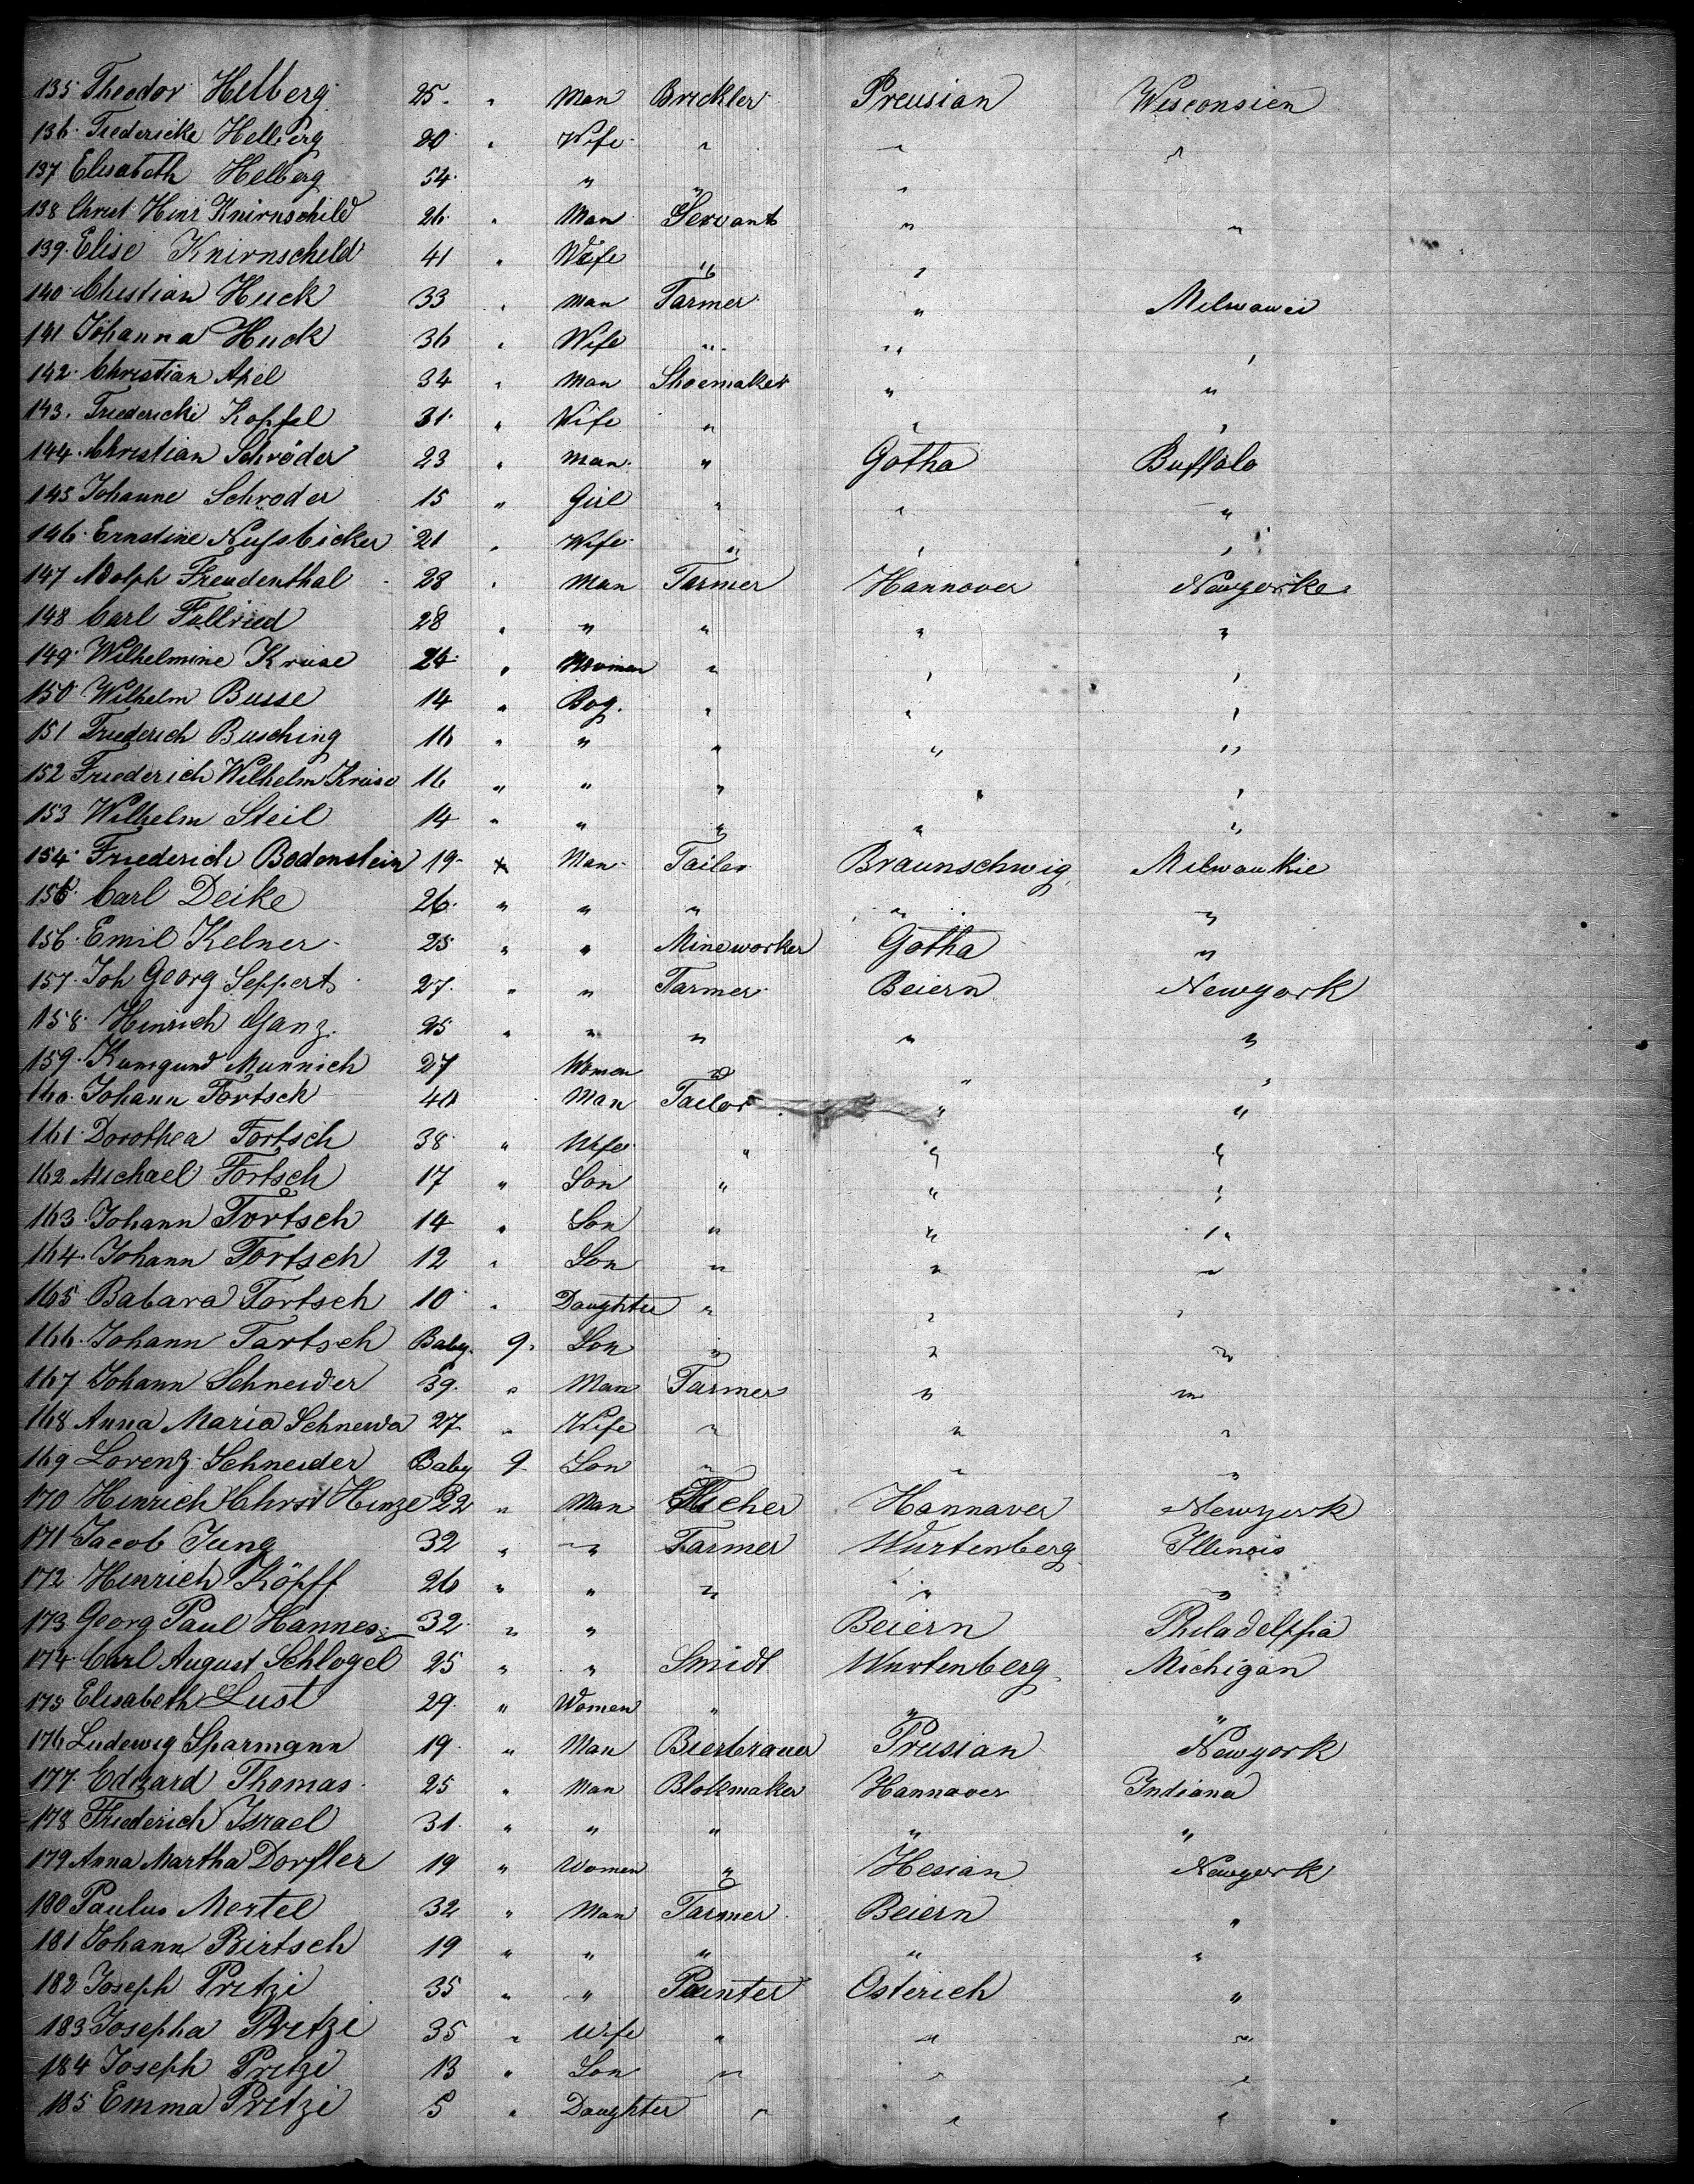 135 Theodor Helberg 25. " Man Brickler Preusian Wisconsien
136. Friedericke Helberg 20 " Wife " " "
137 Elisabeth Helberg 54. " " " "
138 Christ Heinr Knirnschild 26. " Man Servant " "
139. Elise Knirnscheld 41 " Wife " "
140 Christian Huck 33 " Man Farmer " Milwawei
141 Johanna Huck 36 " Wife " " "
142. Christian Apel 34 " Man Shoemaker " "
143. Friedericke Kopfel 31. " Wife " " "
144. Christian Schröder 23 " Man. " Gotha Buffalo
145 Johanne Schroder 15 " Girl " " "
146. Ernstine Nussbicker 21 " Wife " " "
147 Adolph Freudenthal 28 " Man Farmer Hannover Newyorke
148 Carl Fallried 28 " " " " "
149. Wilhelmine Kruse 24. " Woman " " "
150 Wilhelm Busse 14 " Boy. " " "
151 Friederich Busching 16 " " " " "
152 Friederich Wilhelm Kruse 16 " " " " "
153 Wilhelm Steil 14 " " " " "
154. Friederich Bodenstein 19 " Man Tailor Braunschwig Milwaukie
155. Carl Deike 26. " " " " "
156. Emil Kelner 25 " " Mineworker Gotha "
157. Joh Georg Seppert 27. " " Farmer Beiern Newyork
158. Hinrich Ganz. 25 " " " " "
159. Kunigund Munnich 27 Women " " "
160. Johann Fortsch 40 Man Tailor " "
161. Dorothea Fortsch 38. " Wife " " "
162 Michael Fortsch 17 " Son " " "
163. Johann Fortsch 14 " Son " " "
164. Johann Fortsch 12 " Son " " "
165 Babara Fortsch 10 " Daughter " " "
166. Johann Tartsch Baby. 9. Son " " "
167 Johann Schneider 39. " Man Farmer " "
168 Anna Maria Schneida 27 " Wife " " "
169 Lorenz Schneider Baby 9 Son " " "
170 Hinrich Christ Hinze 22 " Man Hannaver Newyork
171 Jacob Jung 32 " " Farmer Wurtenberg Illinois
172. Hinrich Köpff 26 " " " " "
173 Georg Paul Hannes 32. " " Beiern Philadelfia
174 Carl August Schlogel 25 " " Smidt Wurtenberg Michigan
175 Elisabeth Lust 29. " Women " " "
176 Ludewig Sparmann 19 " Man Bierbrauer Prusian Newyork
177. Edzard Thomas 25 " Man Blokmaker Hannaver Indiana
178 Friederich Israel 31. " " " " "
179 Anna Martha Dorfler 19 " Women " Hesian Newyork
180 Paulus Mertel 32 " Man Farmer Beiern "
181 Johann Birtsch 19 " " " " "
182 Joseph Pritzi 35 " " Painter Osterich "
183 Josepha Pritzi 35 " Wife " " "
184 Joseph Pritzi 13 " Son " " "
185 Emma Pritzi 5 " Daughter " " "